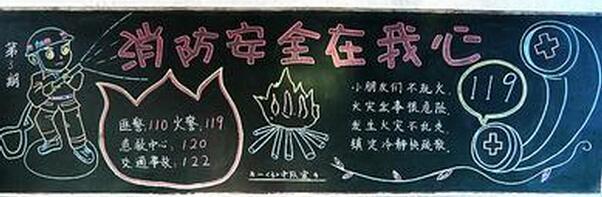 第3期
消防安全在我心
匪警:110 火警:119
急救中心:120
交通事故:122
小朋友们不玩火,
火灾出事很危险,
发生火灾不乱走,
镇定冷静快疏散。
119